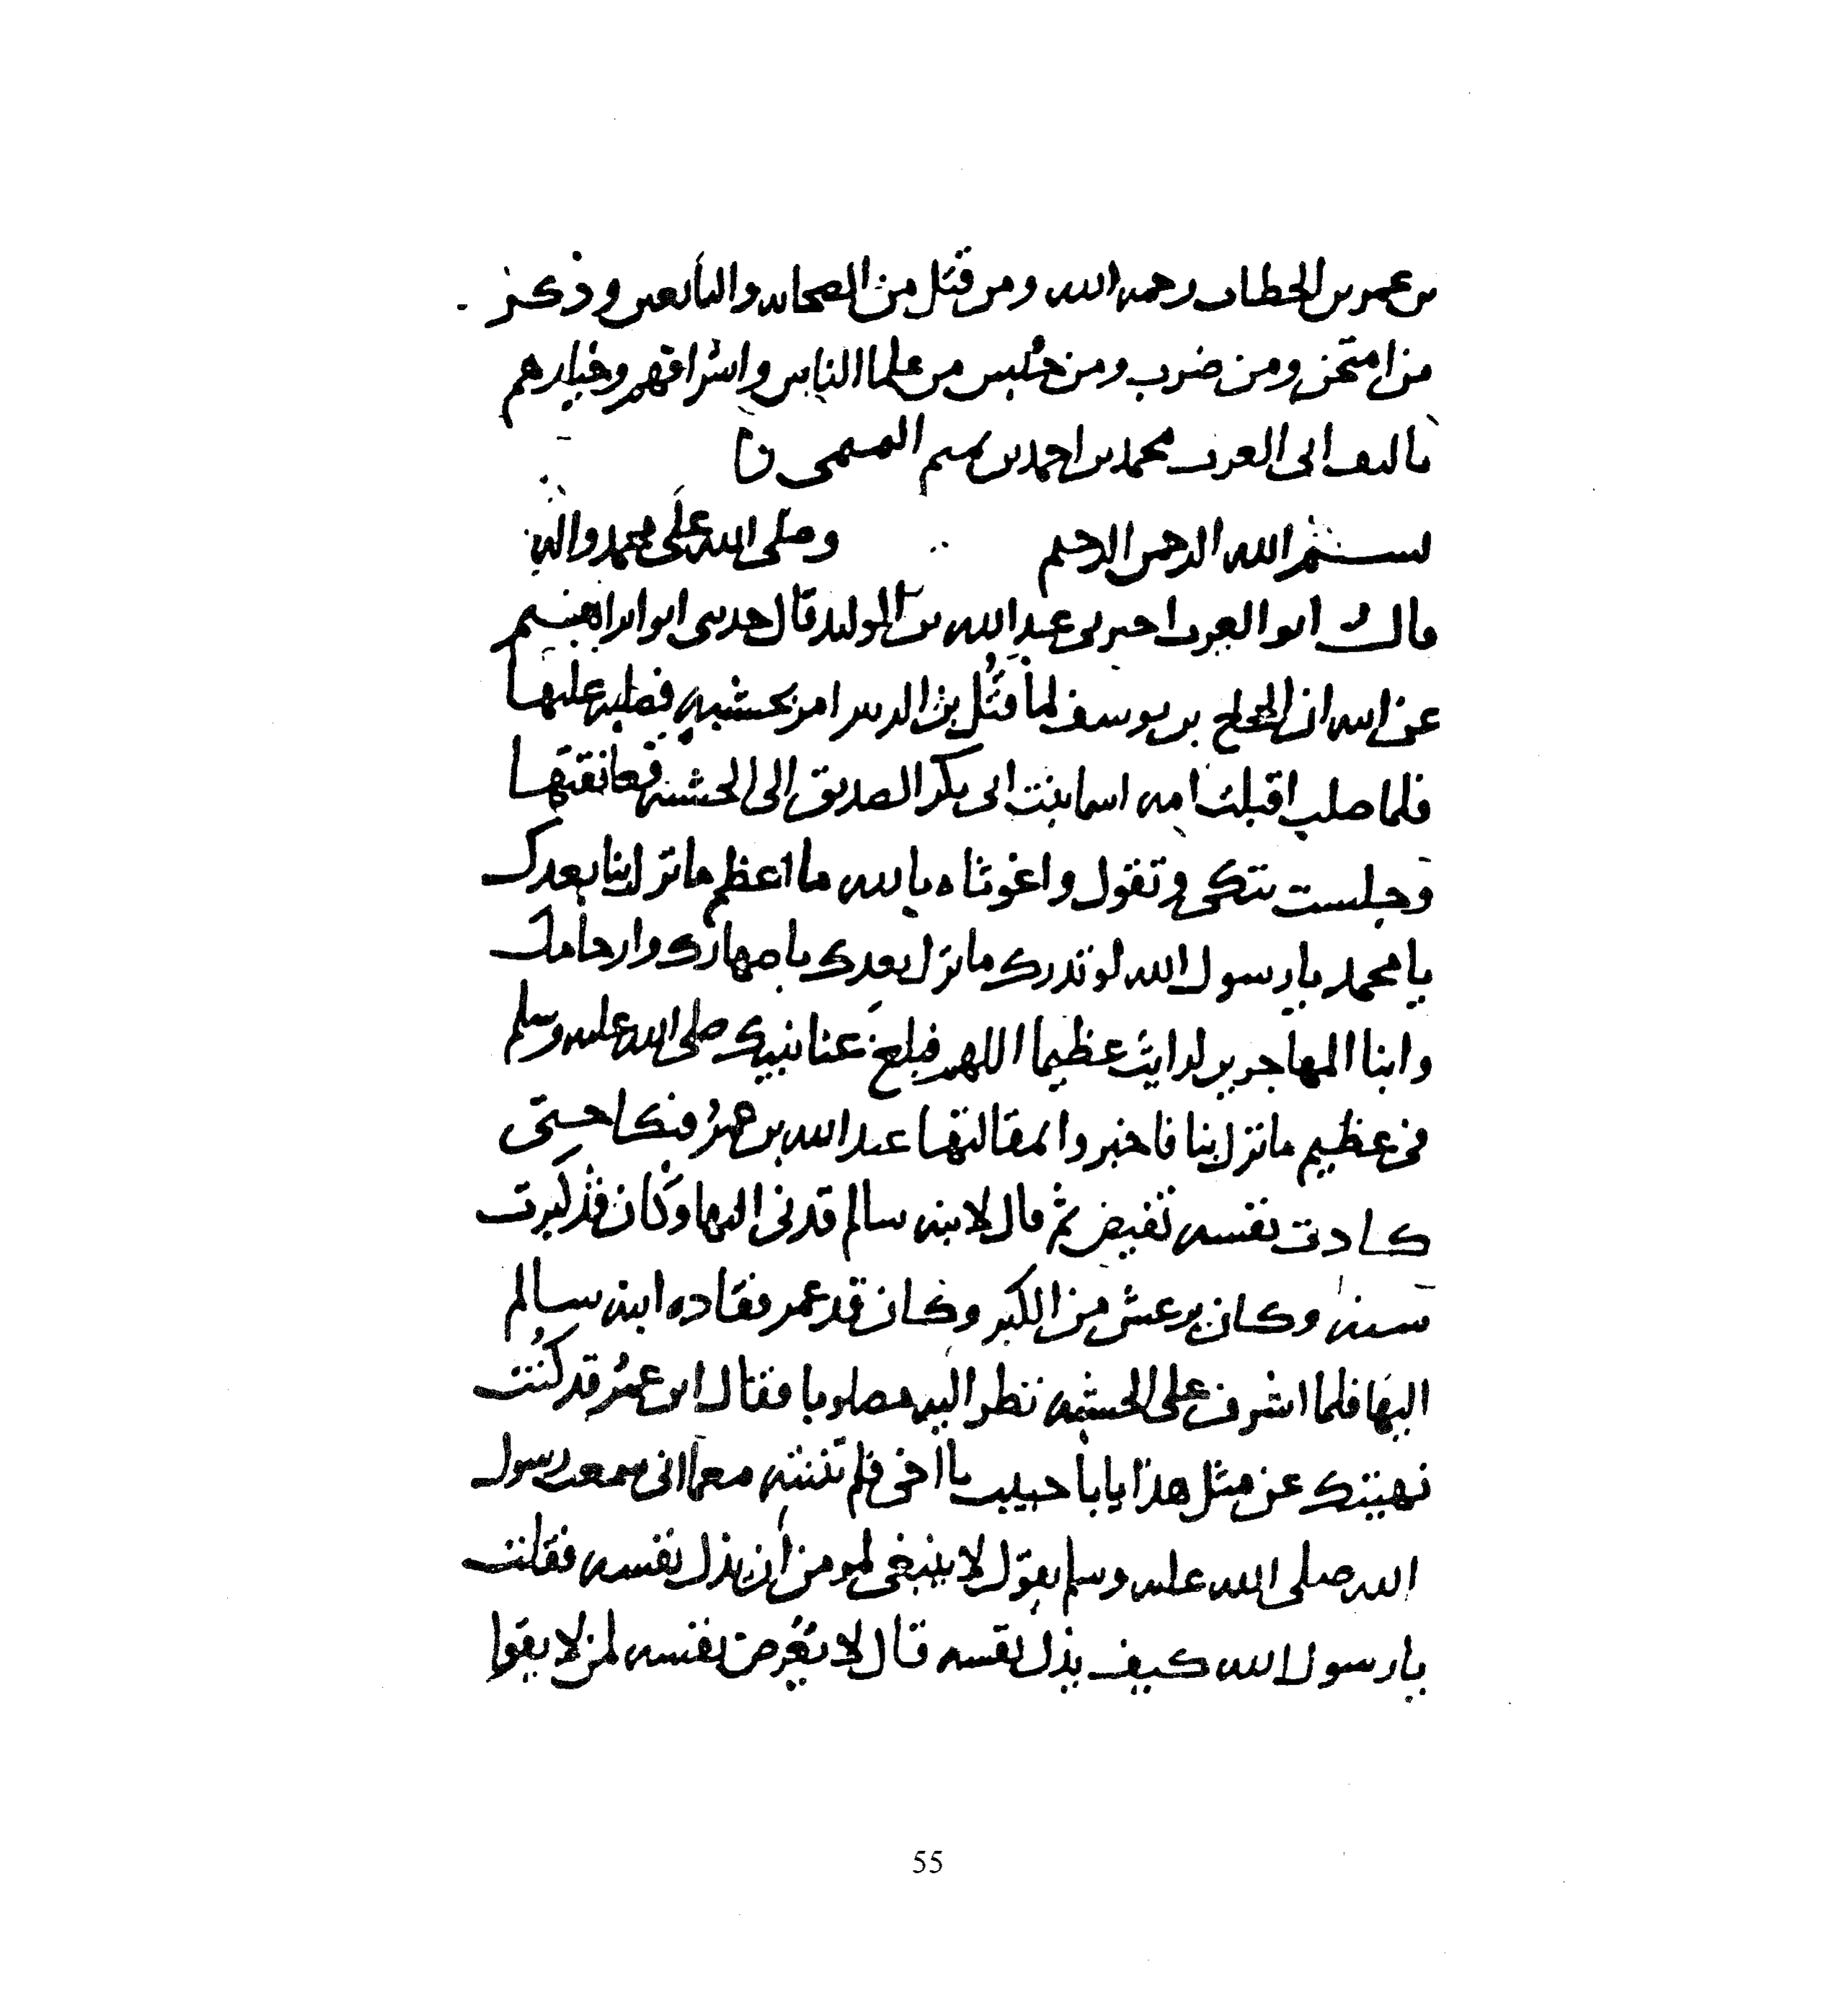 بن عمر بن الخطاب رحمه الله ومن قتل من الصحابه والتابعين وذكر
من امتحن ومن ضرب ومن حبس من علما الناس واشرافهم وخيارهم
تاليف ابى العرب محمد بن احمد بن تميم التميمى
بسم الله الرحمن الرحيم وصلى الله على محمد واله
قال ابو العرب اخبرنى عبد الله بن الوليد قال حدثنى ابو ابراهيم
عن ابيه ان الحجاج بن يوسف لما قتل بن الزبير امر بخشبه فصلبه عليها
فلما صلب اقبلت امه اسما بنت ابى بكر الصديق الى الخشبه فعانقتها
وجلست تبكى وتقول واغوثاه يالله ما اعظم ما نزل بنا بعدك
يا محمد يا رسول الله لو تدرك ما نزل بعدك باصهارك وارحامك
وابنا المهاجرين لرايت عظيما اللهم فبلغ عنا نبيك صلى الله عليه وسلم
فى عظيم ما نزل بنا فاخبروا بمقالتها عبد الله بن عمر فبكا حتى
كادت نفسه تفيض ثم قال لابنه سالم قدنى اليها وكان قد كبرت
سنه وكان يرعش من الكبر وكان قد عمر فقاده ابنه سالم
اليها فلما اشرف على الخشبه نظر اليه مصلوبا فقال ابن عمر قد كنت
نهيتك عن مثل هذا يابا حبيب يا اخى فلم تنته معما انى سمعت رسول
الله صلى الله عليه وسلم يقول لا ينبغى لمومن ان يذل نفسه فقلت
يا رسول الله كيف يذل نفسه قال لا يعرض نفسه لمن لا يقوا
55